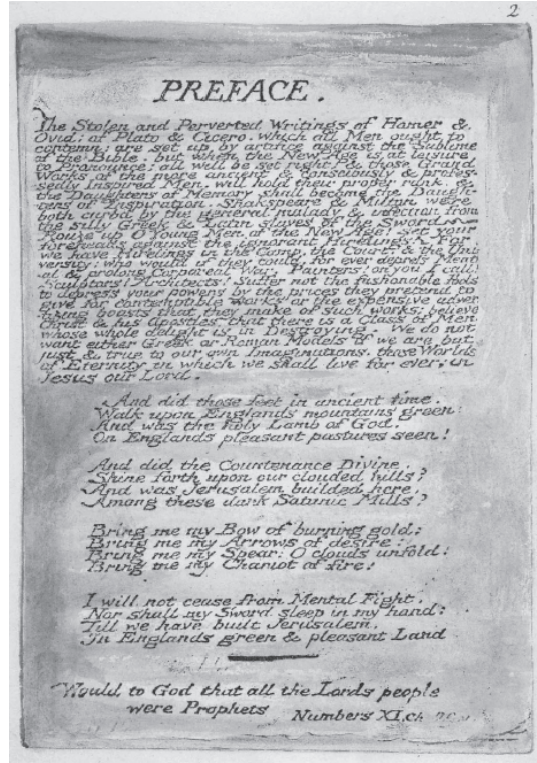 2
PREFACE.
The Stolen and Perverted Writings of Homer &
Ovid: of Plato & Cicero. which all Men ought to
contemn: are set up by artifice against the Sublime
of the Bible. but when the New Age is at leisure
to Pronounce; all will be set right: & those Grand
Works of the more ancient & consciously & profes-
sedly Inspired Men, will hold their proper rank, &
the Daughters of Memory shall become the Daugh-
ters of Inspiration. Shakspeare & Milton were
both curbd by the general malady & infection from
the silly Greek & Latin slaves of the Sword.
Rouze up O Young Men of the New Age! set your
foreheads against the ignorant Hirelings! For
we have Hirelings in the Camp, the Court, & the Uni
versity: who would if they could, for ever depress Ment
al & prolong Corporeal War. Painters! on you I call!
Sculptors! Architects! Suffer not the fashonable Fools
to depress your powers by the prices they pretend to
give for contemptible works or the expensive adver
tizing boasts that they make of such works; believe
Christ & his Apostles that there is a Class of Men
whose whole delight is in Destroying. We do not
want either Greek or Roman Models if we are but
just & true to our own Imaginations, those Worlds
of Eternity in which we shall live for ever; in
Jesus our Lord.
And did those feet in ancient time.
Walk upon Englands mountains green:
And was the holy Lamb of God.
On Englands pleasant pastures seen!
And did the Countenance Divine.
Shine forth upon our clouded hills?
And was Jerusalem builded here,
Among these dark Satanic Mills?
Bring me my Bow of burning gold:
Bring me my Arrows of desire:
Bring me my Spear: O clouds unfold:
Bring me my Chariot of fire!
I will not cease from Mental Fight.
Nor shall my Sword sleep in my hand:
Till we have built Jerusalem.
In Englands green & pleasant Land
Would to God that all the Lords people
were Prophets Numbers XI.ch